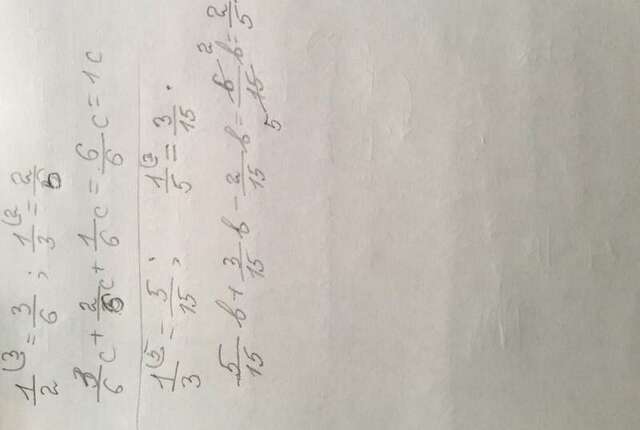 1/2 (3 = 3/6 ; 1/3 (2 = 2/6
3/6 c + 2/6 c + 1/6 c = 6/6 c = 1c
1/3 (5 = 5/15 ; 1/5 (3 = 3/15 .
5/15 b + 3/15 b - 2/15 b = 6 2/15 5 b = 2/5